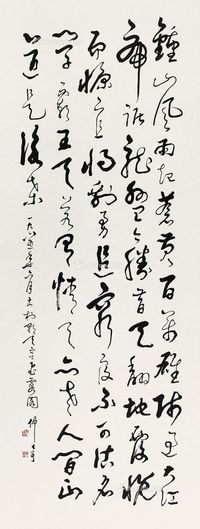 鍾山風雨起蒼黄百萬雄師過大江
虎踞龍盤今勝昔天翻地覆慨
而慷宜將剩勇追窮寇不可沽名
學霸王天若有情天亦老人間正
道是滄桑 一九八五年六月